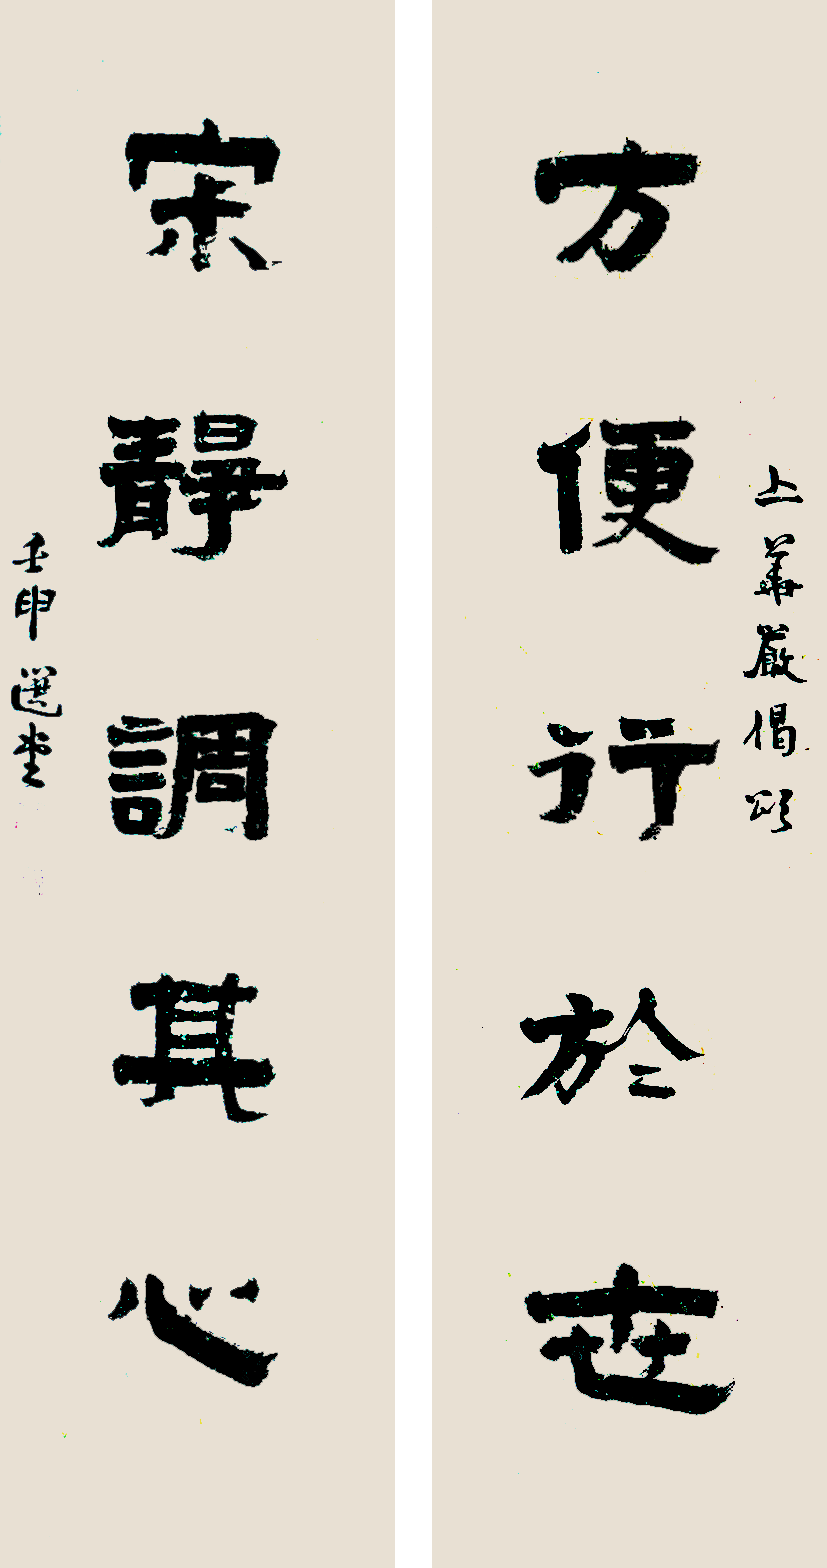 上華嚴偈頌
方便行於世
寂靜調其心
壬申選堂